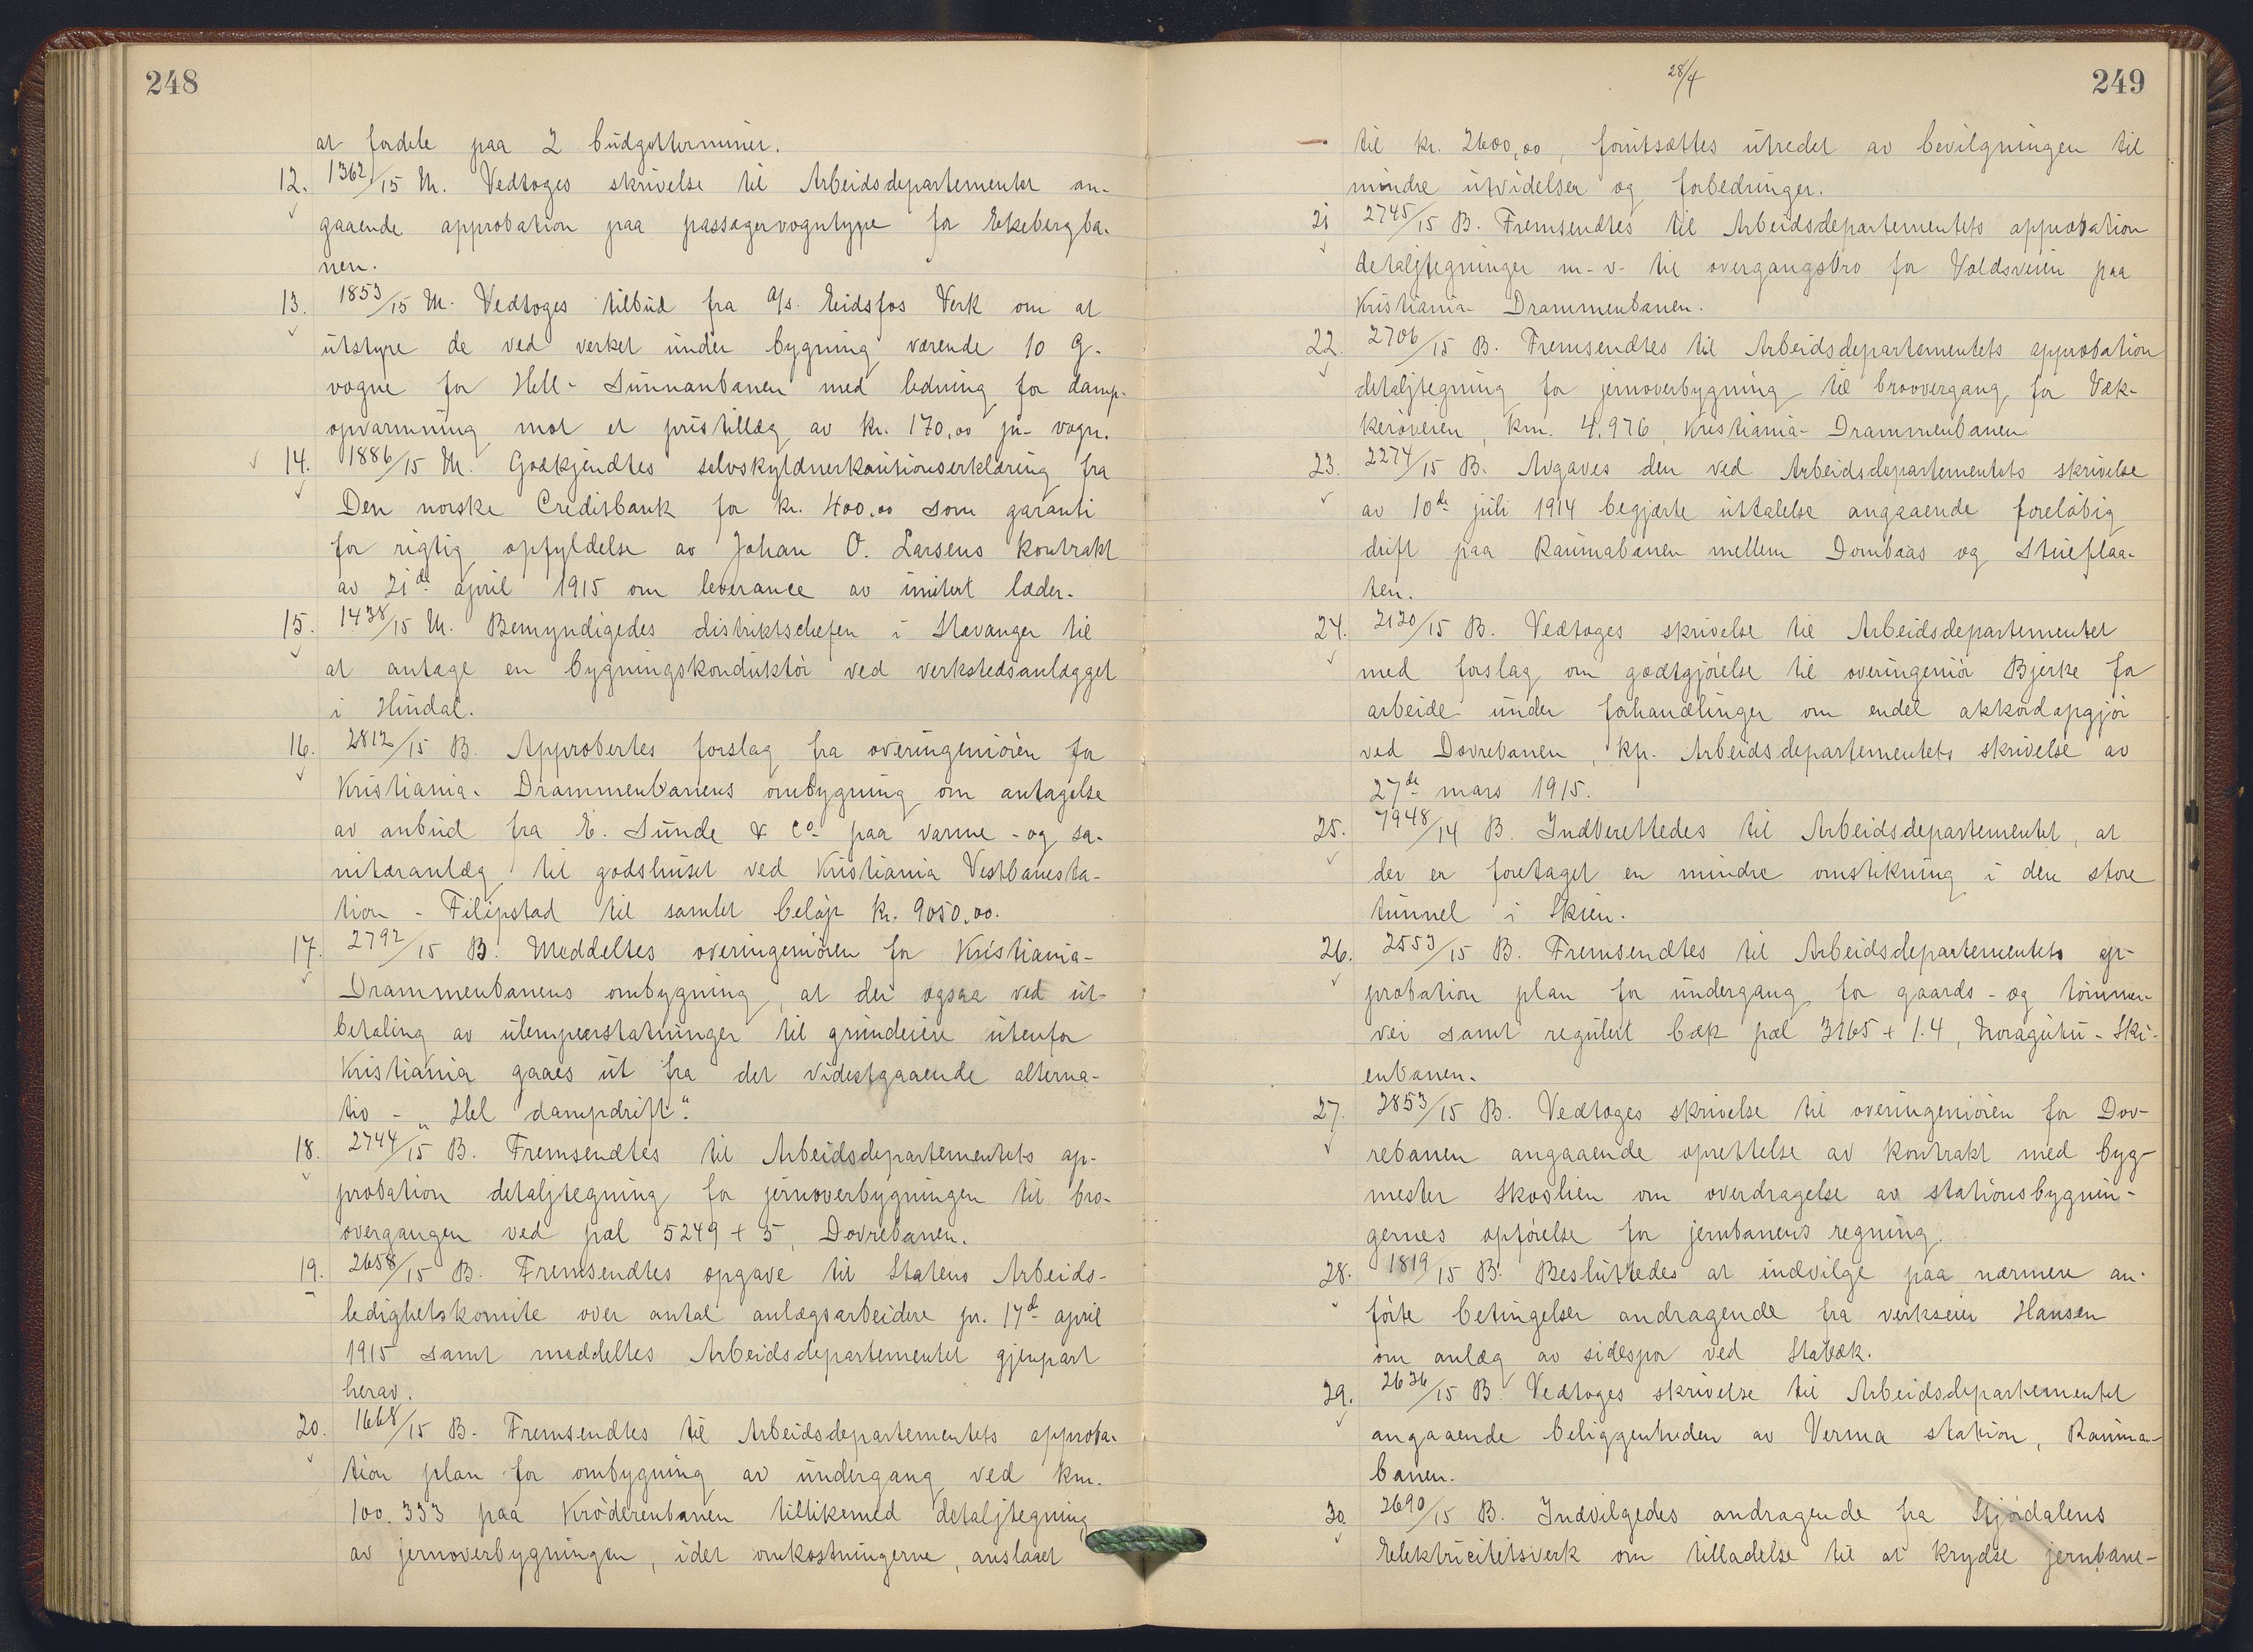 248
at fordele paa 2 budgetterminer.
12. 1362/15 M. Vedtoges skrivelse til Arbeidsdepartementet an-
gaaende approbation paa passagervogntype for Ekebergba-
nen.
13. 1853/15 M. Vedtoges tilbud fra A/s. Eidsfos Verk om at
utstyre de ved verket under bygning værende 10 G-
vogne for Hell-Sunnanbanen med ledning for damp-
opvarmning mot et pristillæg av kr. 170,00 pr. vogn.
14. 1886/15 M. Godkjendtes selvskyldnerkautionserklæring fra
Den norske Creditbank for kr. 400,00 som garanti
for rigtig opfyldelse av Johan O. Larsens kontrakt
av 21de april 1915 om leverance av imitert læder.
15. 1438/15 M. Bemyndigedes distriktschefen i Stavanger til
at antage en bygningskonduktør ved verkstedsanlægget
i Hindal.
16. 2812/15 B. Approbertes forslag fra overingeniøren for
Kristiania-Drammenbanens ombygning om antagelse
av anbud fra E. Sunde & Co. paa varme- og sa-
nitæranlæg til godshuset ved Kristiania Vestbanesta-
tion - Filipstad til samlet beløp kr. 9050,00.
17. 2792/15 B. Meddeltes overingeniøren for Kristiania-
Drammenbanens ombygning, at der ogsaa ved ut-
betaling av ulempeerstatninger til grundeiere utenfor
Kristiania gaaes ut fra det videstgaaende alterna-
tiv - „Hel dampdrift".
18. 2744/15 B. Fremsendtes til Arbeidsdepartementets ap-
probation detaljtegning for jernoverbygningen til bro-
overgangen ved pæl 5249 + 5, Dovrebanen.
19. 2658/15 B. Fremsendtes opgave til Statens Arbeids-
ledighetskomite over antal anlægsarbeidere pr. 17de april
1915 samt meddeltes Arbeidsdepartementet gjenpart
herav.
20. 1668/15 B. Fremsendtes til Arbeidsdepartementets approba-
tion plan for ombygning av undergang ved km.
100.333 paa Krøderenbanen tillikemed detaljtegning
av jernoverbygningen, idet omkostningerne, anslaaet
28/4
249
til kr. 2600,00, forutsættes utredet av bevilgningen til
mindre utvidelser og forbedringer.
21 2745/15 B. Fremsendtes til Arbeidsdepartementets approbation
detaljtegninger m.v. til overgangsbro for Voldsveien paa
Kristiania-Drammenbanen.
22. 2706/15 B. Fremsendtes til Arbeidsdepartementets approbation
detaljtegning for jernoverbygning til broovergang for Væk-
kerøveien, km. 4.976, Kristiania-Drammenbanen
23. 2274/15 B. Avgaves den ved Arbeidsdepartementets skrivelse
av 10de juli 1914 begjærte uttalelse angaaende foreløbig
drift paa Raumabanen mellem Dombaas og Stueflaa-
ten.
24. 2120/15 B. Vedtoges skrivelse til Arbeidsdepartementet
med forslag om godtgjørelse til overingeniør Bjerke for
arbeide under forhandlinger om endel akkordopgjør
ved Dovrebanen, kfr. Arbeidsdepartementets skrivelse av
27de mars 1915.
25. 7948/14 B. Indberettedes til Arbeidsdepartementet, at
der er foretaget en mindre omstikning i den store
tunnel i Skien.
26. 2553/15 B. Fremsendtes til Arbeidsdepartementets ap-
probation plan for undergang for gaards- og tømmer-
vei samt regulert bæk pæl 3165 + 1.4, Noragutu-Ski-
enbanen.
27. 2853/15 B. Vedtoges skrivelse til overingeniøren for Dov-
rebanen angaaende oprettelse av kontrakt med byg-
mester Skoslien om overdragelse av stationsbygnin-
gernes opførelse for jernbanens regning.
28. 1819/15 B. Besluttedes at indvilge paa nærmere an-
førte betingelser andragende fra verkseier Hansen
om anlæg av sidespor ved Stabæk.
29. 2636/15 B. Vedtoges skrivelse til Arbeidsdepartementet
angaaende beliggenheden av Verma station, Rauma-
banen.
30. 2690/15 B. Indvilgedes andragende fra Stjørdalens
Elektricitetsverk om tilladelse til at krydse jernbane-